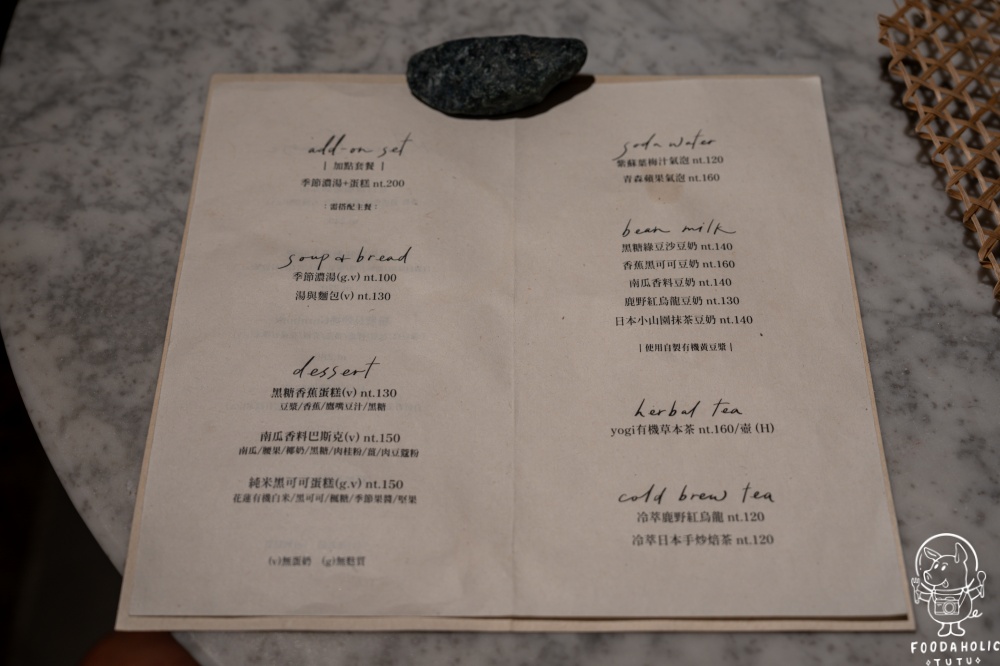 add-on set
| 加點套餐 |
季節濃湯+蛋糕 nt.200
|需搭配主餐|
soup & bread
季節濃湯(g.v) nt.100
湯與麵包(v) nt.130
dessert
黑糖香蕉蛋糕(v) nt.130
豆漿/香蕉/鷹嘴豆汁/黑糖
南瓜香料巴斯克(v) nt.150
南瓜/腰果/椰奶/黑糖/肉桂粉/薑/肉豆蔻粉
純米黑可可蛋糕(g.v) nt.150
花蓮有機白米/黑可可/楓糖/季節果醬/堅果
(v)無蛋奶 (g)無麩質
soda water
紫蘇葉梅汁氣泡 nt.120
青森蘋果氣泡 nt.160
bean milk
黑糖綠豆沙豆奶 nt.140
香蕉黑可可豆奶 nt.160
南瓜香料豆奶 nt.140
鹿野紅烏龍豆奶 nt.130
日本小山園抹茶豆奶 nt.140
| 使用自製有機黃豆漿 |
herbal tea
yogi有機草本茶 nt.160/壺 (H)
cold brew tea
冷萃鹿野紅烏龍 nt.120
冷萃日本手炒焙茶 nt.120
FOODAHOLIC
TUTU